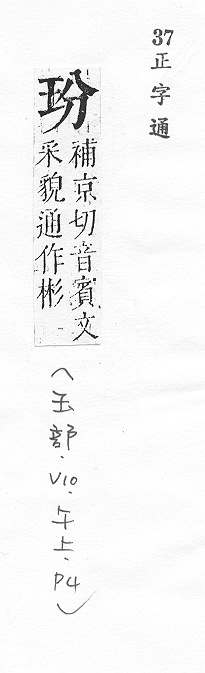 37
正字通
玢
補京切音賓文
采貌通作彬
(玉部.V10.午上.P4)